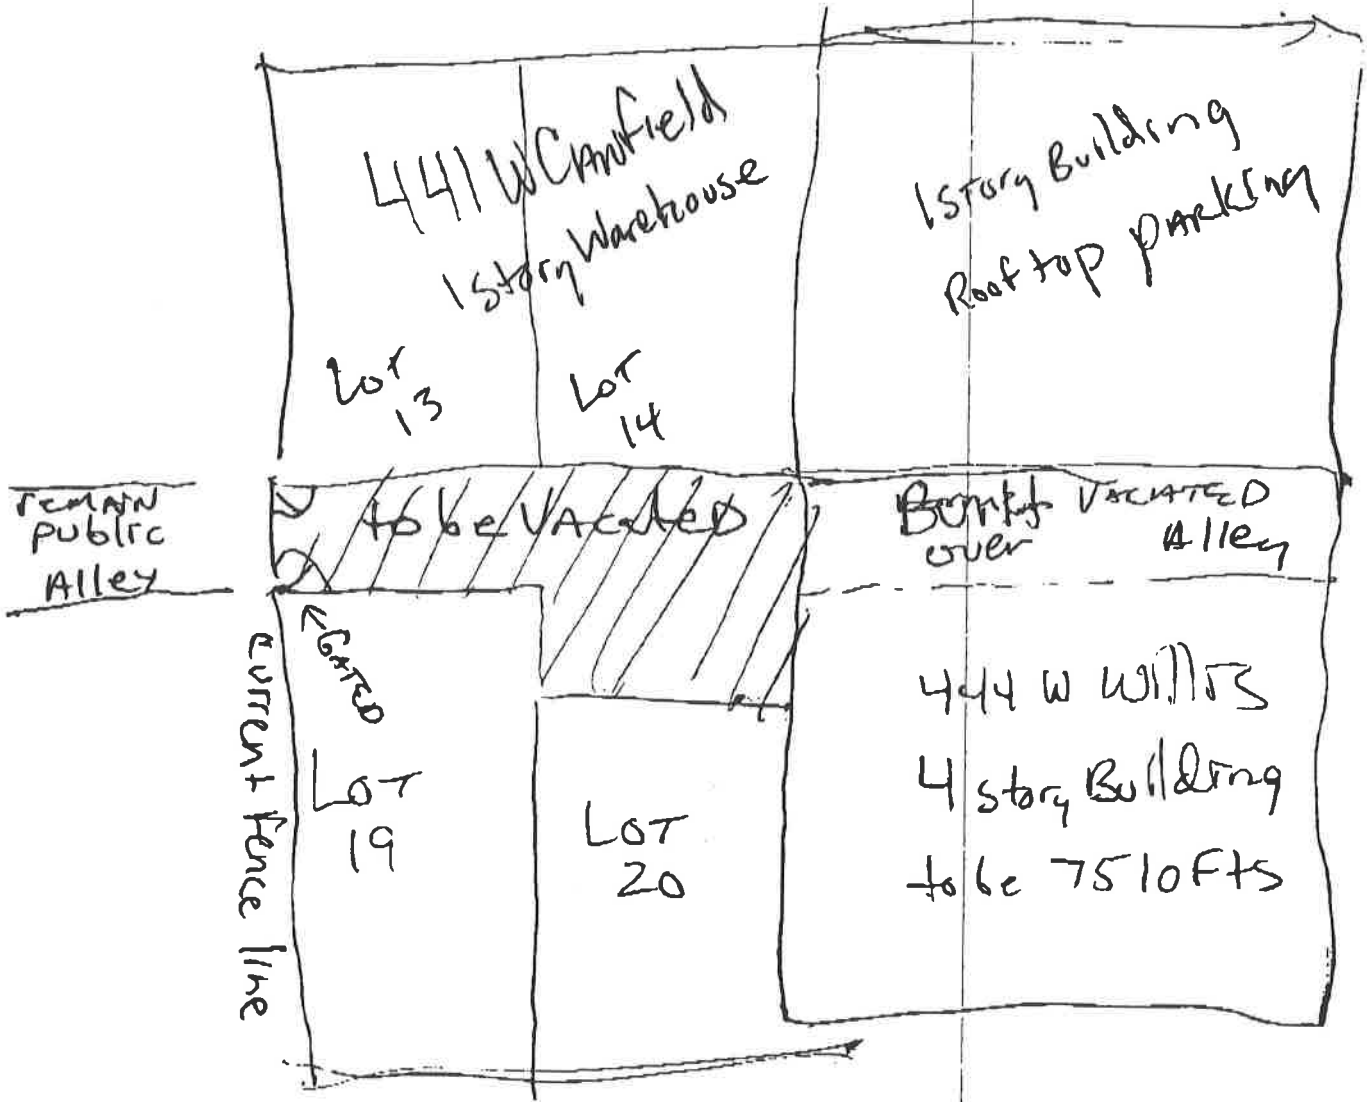 441 W Canfield
1 Story Warehouse
1 Story Building
Rooftop Parking
Lot
13
Lot
14
remain
public
Alley
to be VACATED
over
VACATED
Alley
GATED
current fence line
Lot
19
Lot
20
444 W Willis
4 story Building
to be 75 lofts